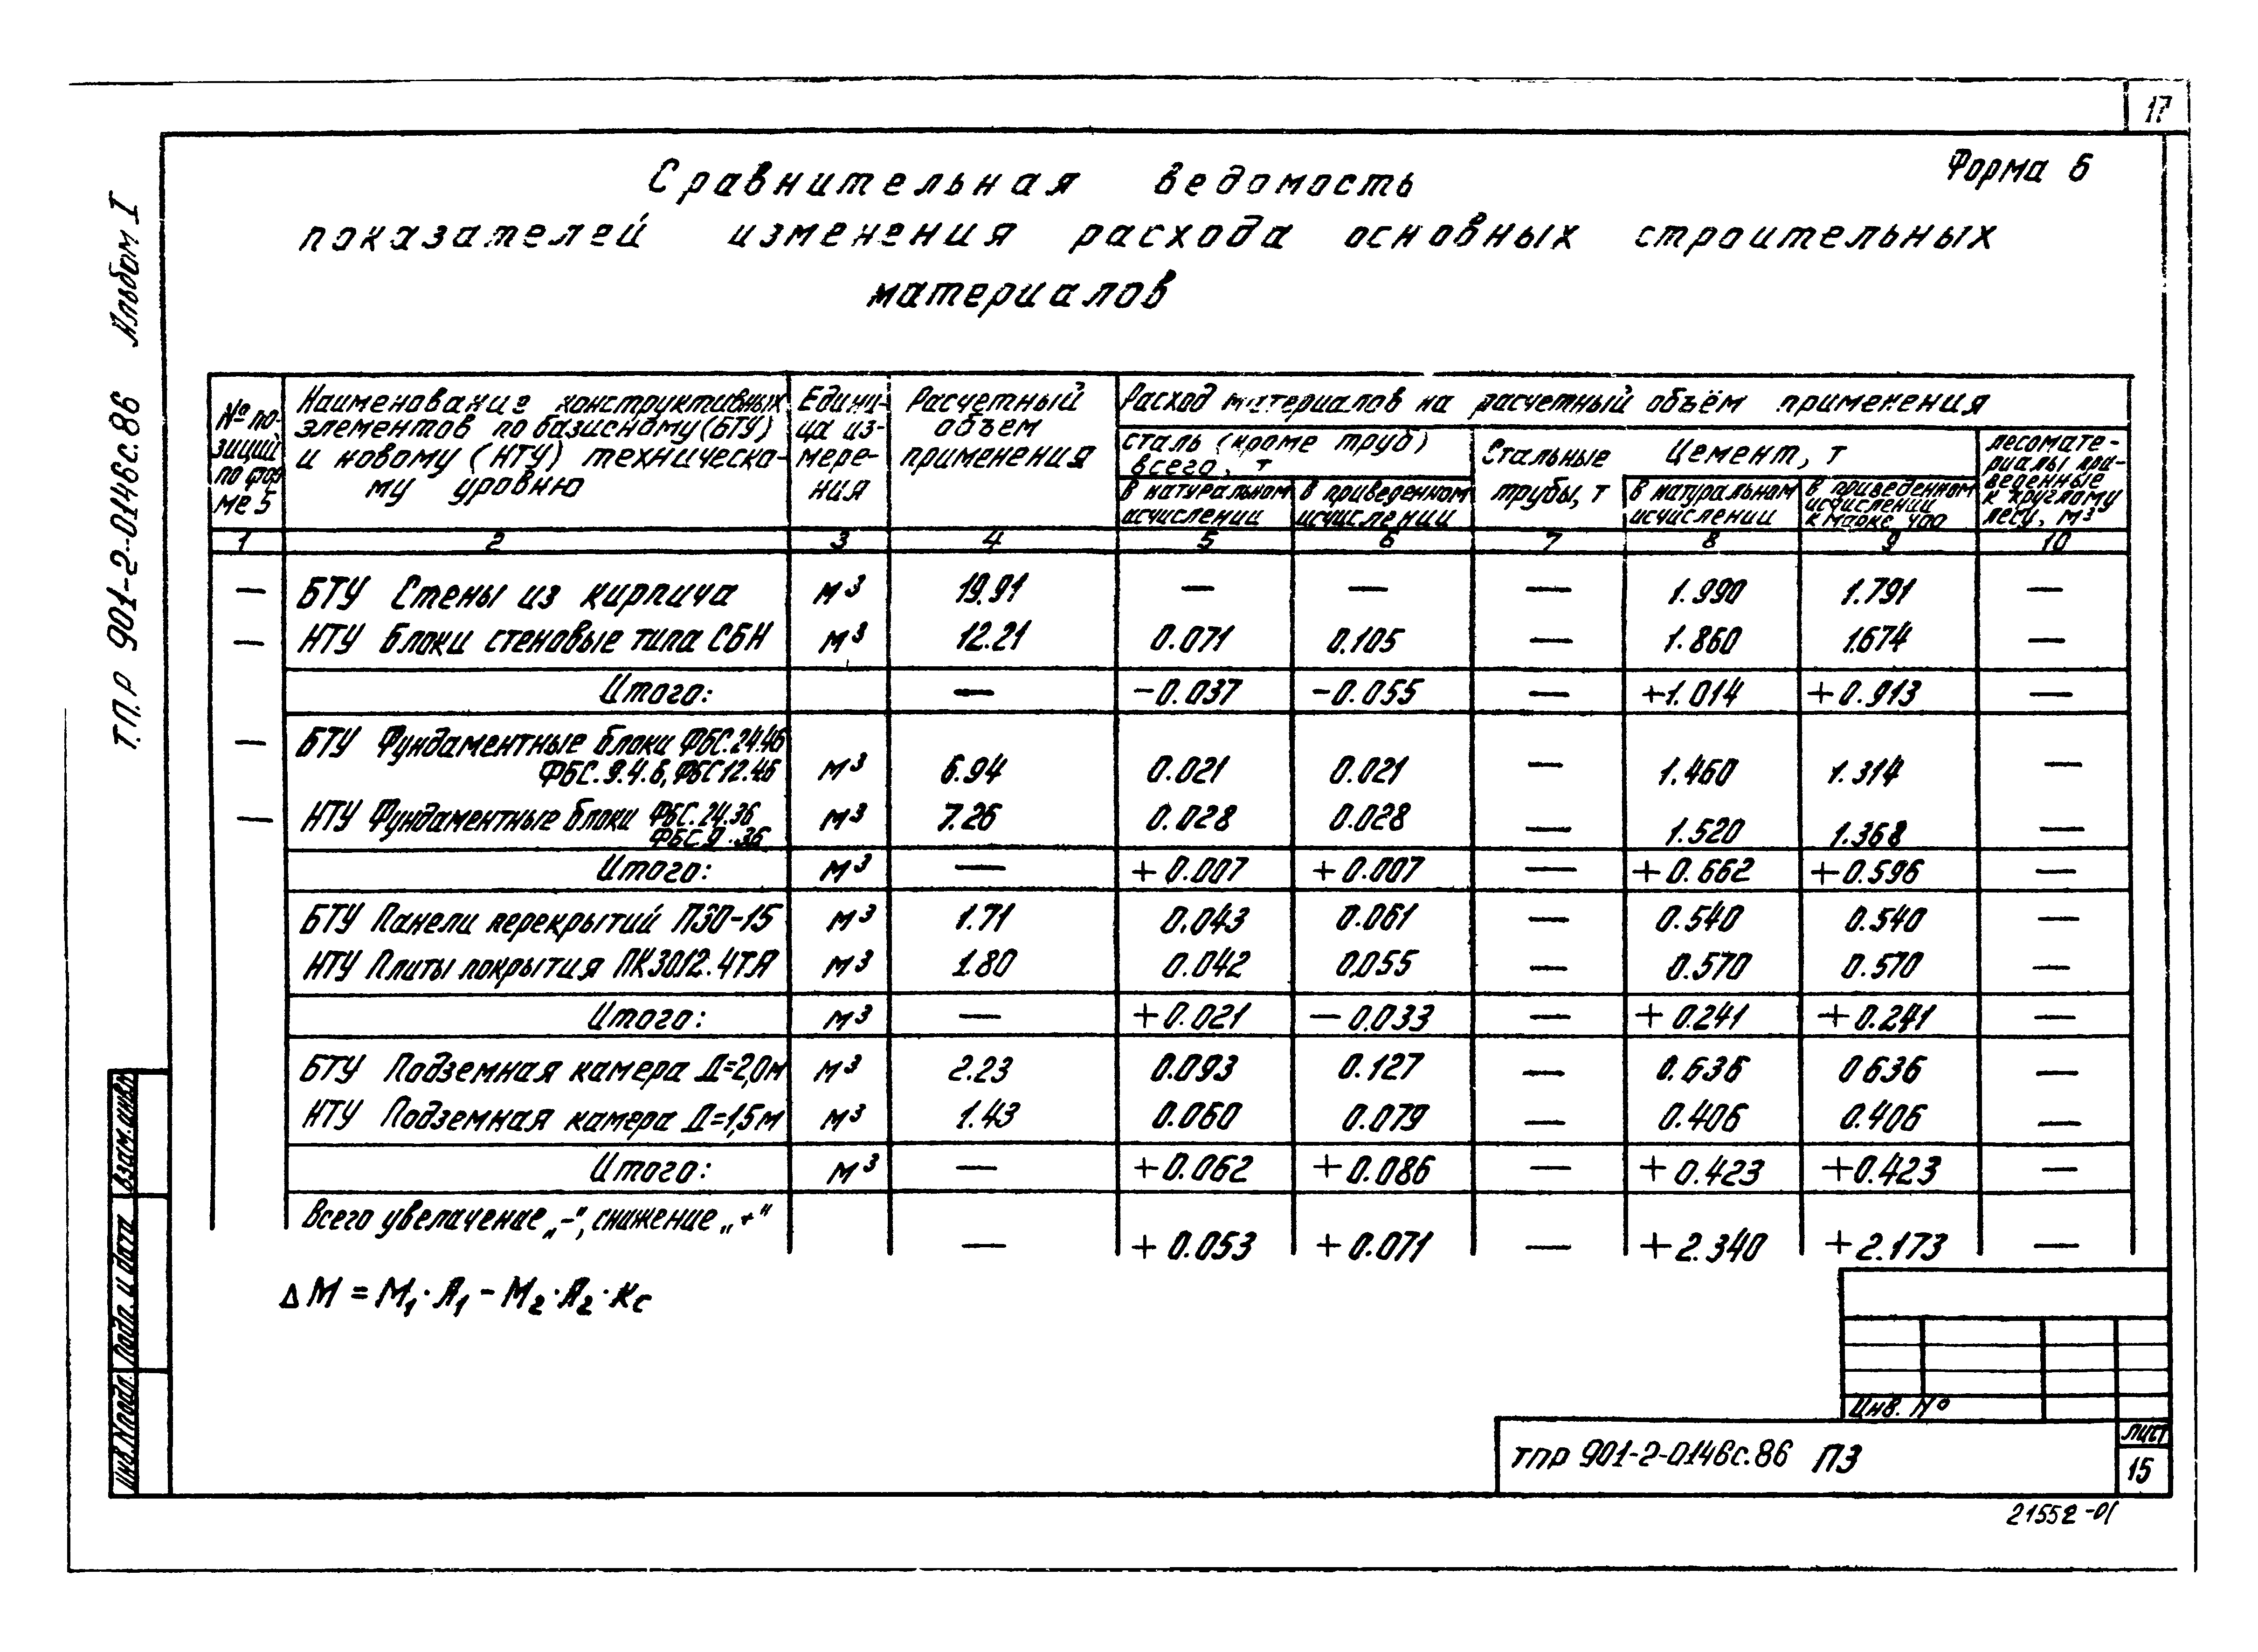 17
Форма 6
Сравнительная ведомость
показателей изменения расхода основных строительных
материалов
Т.П.Р 901-2-0146с.86 Альбом I
№ по-
зиций
по фор
ме 5
Наименования конструктивных
элементов по базисному (БТУ)
и новому (НТУ) техническо-
му уровню
Едини-
ца из-
мере-
ния
Расчетный
объем
применения
Расход материалов на расчетный объём применения
сталь (кроме труб)
всего, т
в натуральном
исчислении
в приведенном
исчислении
Стальные
трубы, т
Цемент, т
в натуральном
исчислении
в приведенном
исчислении
к марке 400
лесомате-
риалы при-
веденные
к круглому
лесу, м³
1 2 3 4 5 6 7 8 9 10
— БТУ Стены из кирпича м³ 19.91 — — — 1.990 1.791 —
— НТУ Блоки стеновые типа СБН м³ 12.21 0.071 0.105 — 1.860 1.674 —
Итого: — -0.037 -0.055 — +1.014 +0.913 —
— БТУ Фундаментные блоки ФБС.24.46
ФБС.9.4.6, ФБС12.46 м³ 6.94 0.021 0.021 — 1.460 1.314 —
— НТУ Фундаментные блоки ФБС.24.36 м³ 7.26 0.028 0.028 — 1.520 1.368 —
ФБС.9.36
Итого: м³ — +0.007 +0.007 — +0.662 +0.596 —
БТУ Панели перекрытий П30-15 м³ 1.71 0.043 0.061 — 0.540 0.540 —
НТУ Плиты покрытия ПК3012.4ТА м³ 1.80 0.042 0.055 — 0.570 0.570 —
Итого: м³ — +0.021 -0.033 — +0.241 +0.241 —
БТУ Подземная камера Д=2,0м м³ 2.23 0.093 0.127 — 0.636 0636 —
НТУ Подземная камера Д=1,5м м³ 1.43 0.060 0.079 — 0.406 0.406 —
Итого: м³ — +0.062 +0.086 — +0.423 +0.423 —
Всего увеличение „-", снижение „+"
— +0.053 +0.071 — +2.340 +2.173 —
ΔM = M₁·A₁ - M₂·A₂·Kc
Инв. №
ТПР 901-2-0146с.86 ПЗ
лист
15
21552-01
Взам.инв.
Подп. и дата
Инв.№ подл.